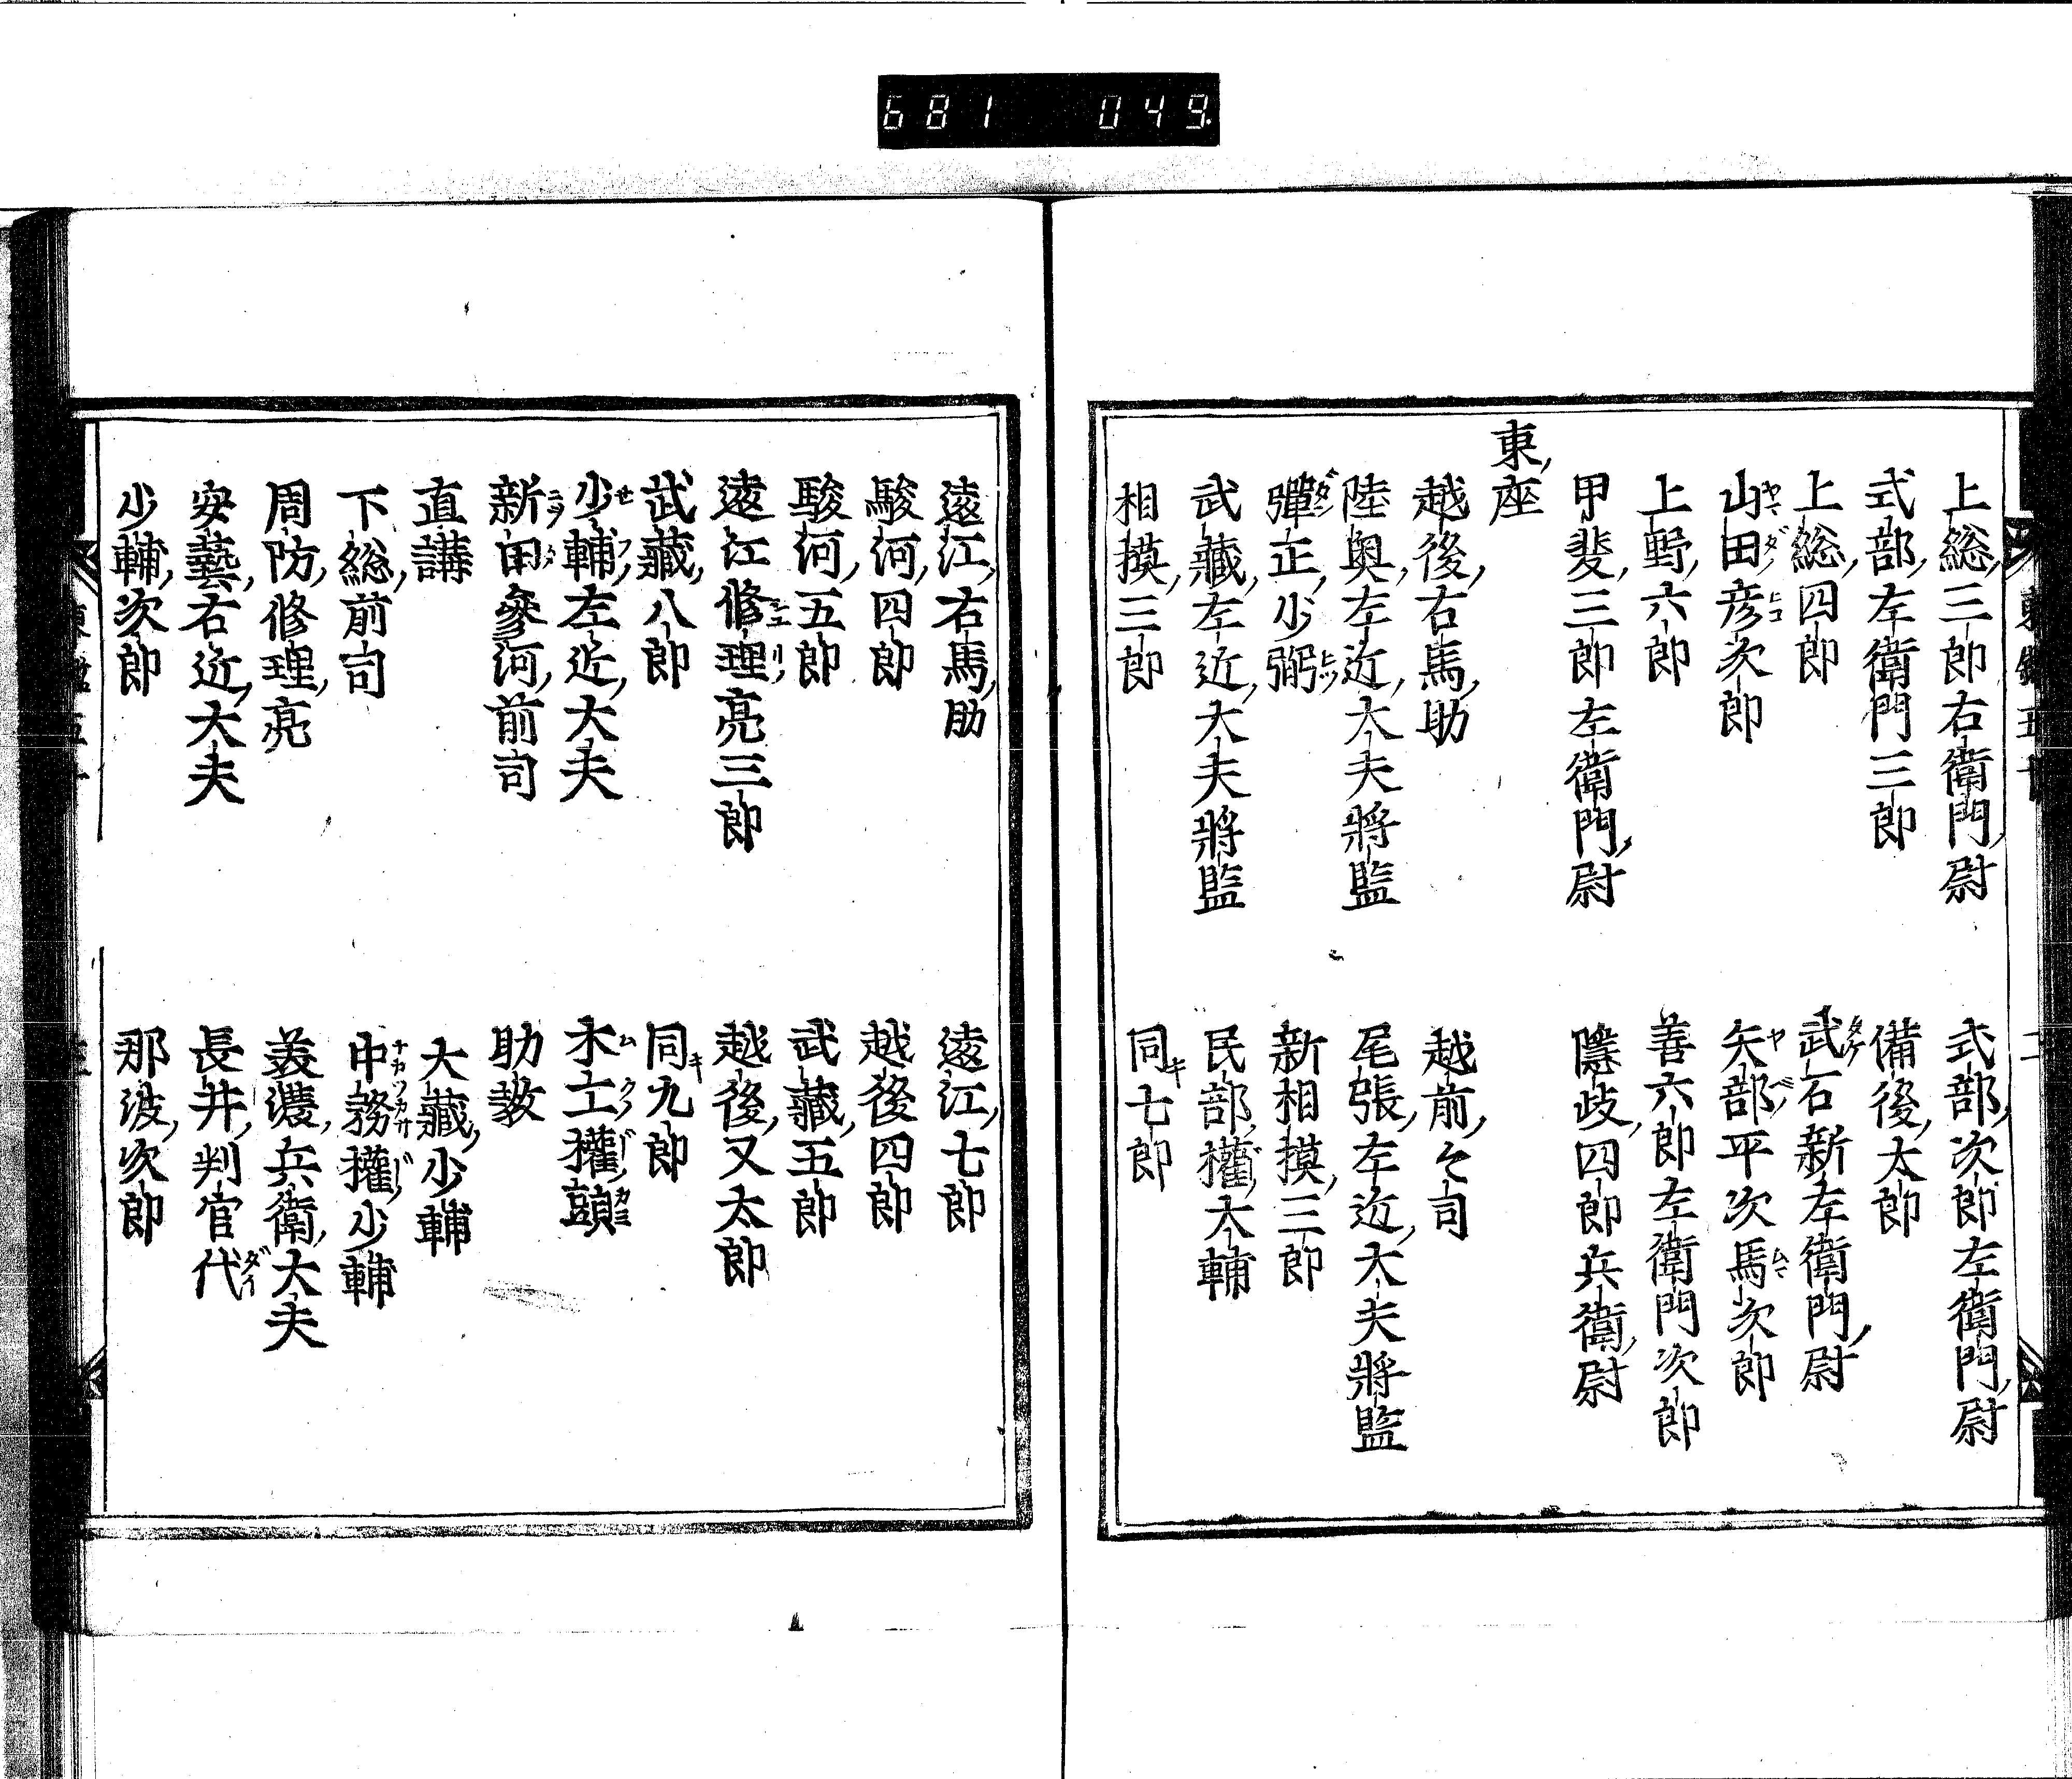 681 049
上総三郎右衛門尉 式部次郎左衛門尉
式部左衛門三郎 備後太郎
上総四郎 武石新左衛門尉
山田彦次郎 矢部平次馬次郎
上野六郎 善六郎左衛門次郎
甲斐三郎左衛門尉 隠岐四郎兵衛尉
東座
越後右馬助 越前々司
陸奥左近大夫將監 尾張左近大夫將監
彈正少弼 新相摸三郎
武藏左近大夫將監 民部權大輔
相摸三郎 同七郎
遠江右馬助 遠江七郎
駿河四郎 越後四郎
駿河五郎 武藏五郎
遠江修理亮三郎 越後又太郎
武藏八郎 同九郎
少輔左近大夫 木工權頭
新田參河前司 助教
直講 大藏少輔
下総前司 中務權少輔
周防修理亮 美濃兵衛大夫
安藝右近大夫 長井判官代
少輔次郎 那波次郎